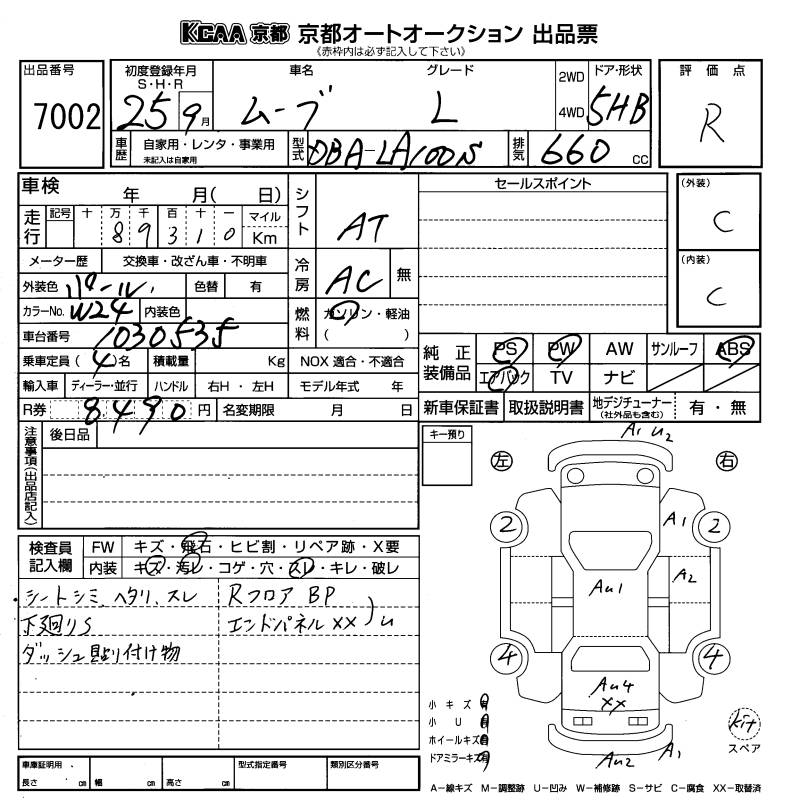 KCAA 京都 京都オートオークション 出品票
《赤枠内は必ず記入して下さい》
出品番号
7002
初度登録年月
S・H・R
25 9月
車名
ムーブ
グレード
L
2WD
4WD
ドア・形状
5HB
評価点
R
車歴
自家用・レンタ・事業用
未記入は自家用
型式
DBA-LA100S
排気
660 cc
車検 年 月( 日)
走行
記号 十 万 千 百 十 一 マイル
8 9 3 1 0 Km
メーター歴 交換車・改ざん車・不明車
外装色 パール 色替 有
カラーNo. W24 内装色
車台番号 1030535
乗車定員 (4)名 積載量 Kg NOX 適合・不適合
輸入車 ディーラー・並行 ハンドル 右H・左H モデル年式 年
R券 8490 円 名変期限 月 日
シフト
AT
冷房
AC 無
燃料
ガソリン・軽油
( )
セールスポイント
(外装)
C
(内装)
C
純正装備品
PS PW AW サンルーフ ABS
エアバック TV ナビ
新車保証書 取扱説明書 地デジチューナー(社外品も含む) 有・無
注意事項(出品店記入)
後日品
キー預り
検査員記入欄
FW キズ・飛石・ヒビ割・リペア跡・X要
内装 キズ・汚レ・コゲ・穴・スレ・キレ・破レ
シートシミ、ヘタリ、スレ
下廻りS
ダッシュ貼り付け物
Rフロア BP
エンドパネル XX )U
左
右
A1 U2
2
2
A1
A2
AU1
4
4
AU4
XX
AU2
A1
小キズ 有
小U 有
ホイールキズ 有
ドアミラーキズ 有
kit
スペア
車庫証明用
長さ cm 幅 cm 高さ cm
型式指定番号
類別区分番号
A-線キズ M-調整跡 U-凹み W-補修跡 S-サビ C-腐食 XX-取替済